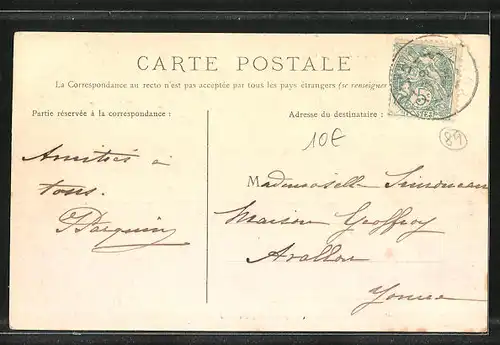 CARTE POSTALE
La Correspondance au recto n'est pas acceptée par tous les pays étrangers (se renseigner
Partie réservée à la correspondance :
Adresse du destinataire :
10€
89
Amitiés à
tous.
Mademoiselle Simoneau
Maison Geoffroy
Avallon
Yonne